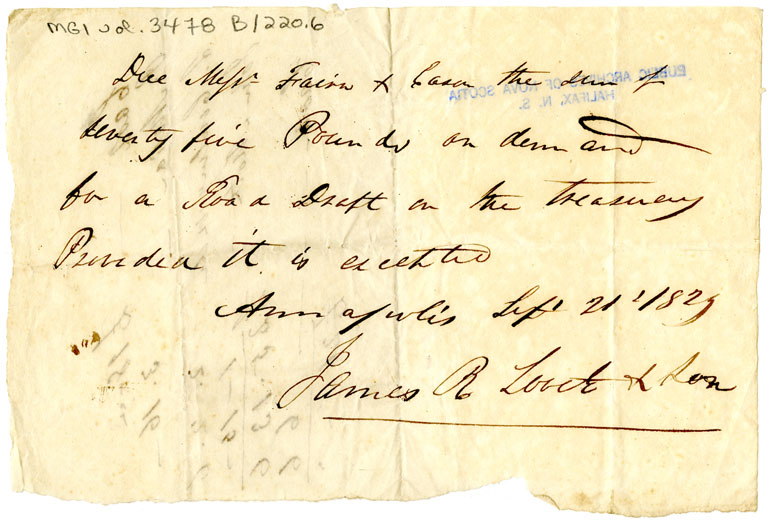 MG1 vol. 3478 B/220.6
Due Messrs Fairn & Eason the sum of
seventy five Pounds on demand
for a Road Draft on the Treasury
Provided it is excepted
Annapolis Sept 21st 1829
James R Lovett & Son
PUBLIC ARCHIVES OF NOVA SCOTIA
HALIFAX, N. S.